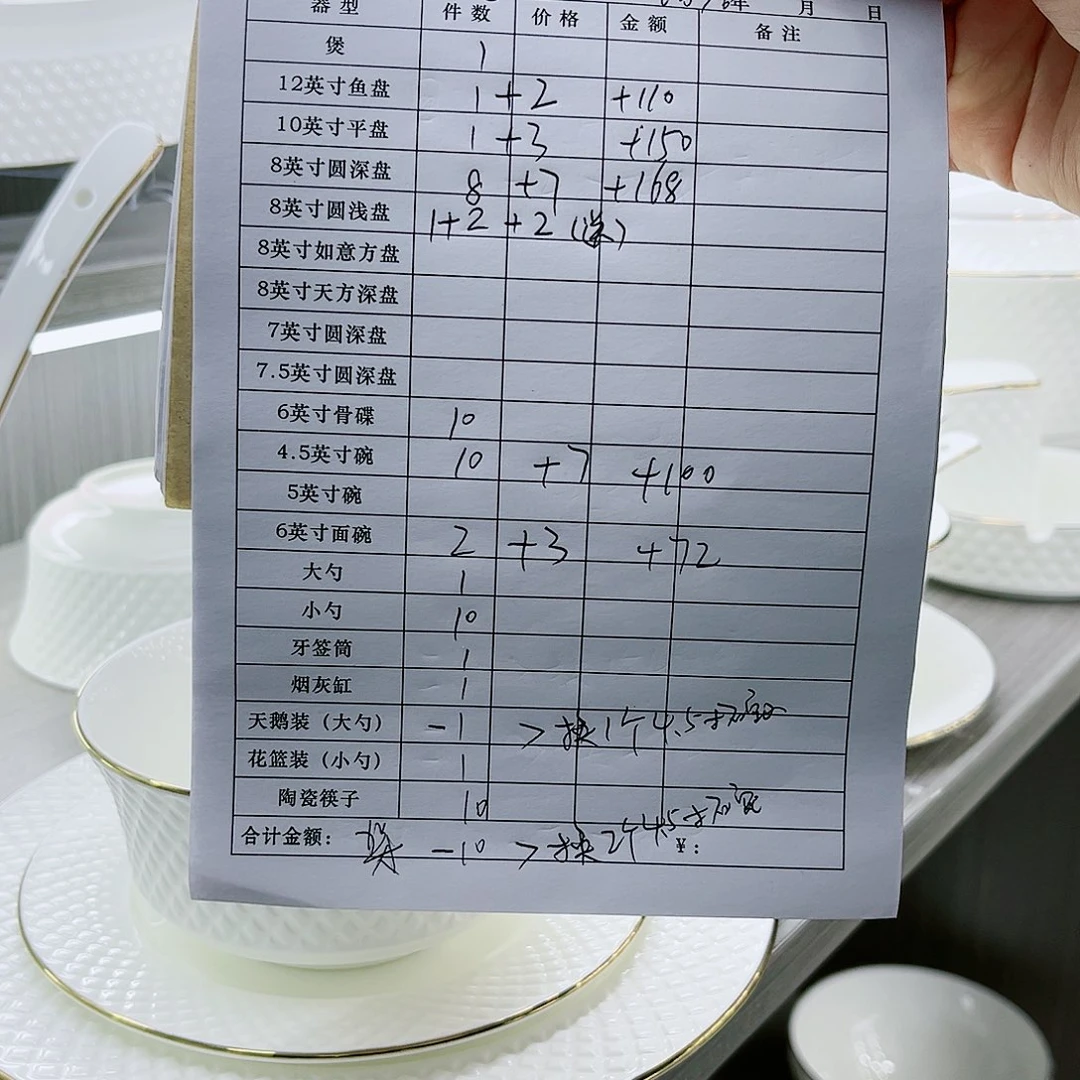 器型 件数 价格 金额 备注 年 月 日
煲 1
12英寸鱼盘 1 +2 +110
10英寸平盘 1 +3 +150
8英寸圆深盘 8 +7 +168
8英寸圆浅盘 1+2 +2 (送)
8英寸如意方盘
8英寸天方深盘
7英寸圆深盘
7.5英寸圆深盘
6英寸骨碟 10
4.5英寸碗 10 +7 +100
5英寸碗
6英寸面碗 2 +3 +72
大勺 1
小勺 10
牙签筒 1
烟灰缸 1
天鹅装（大勺） -1 > 换1个4.5
花篮装（小勺） 1
陶瓷筷子 10
合计金额： -10 > 换2个4.5 ¥：